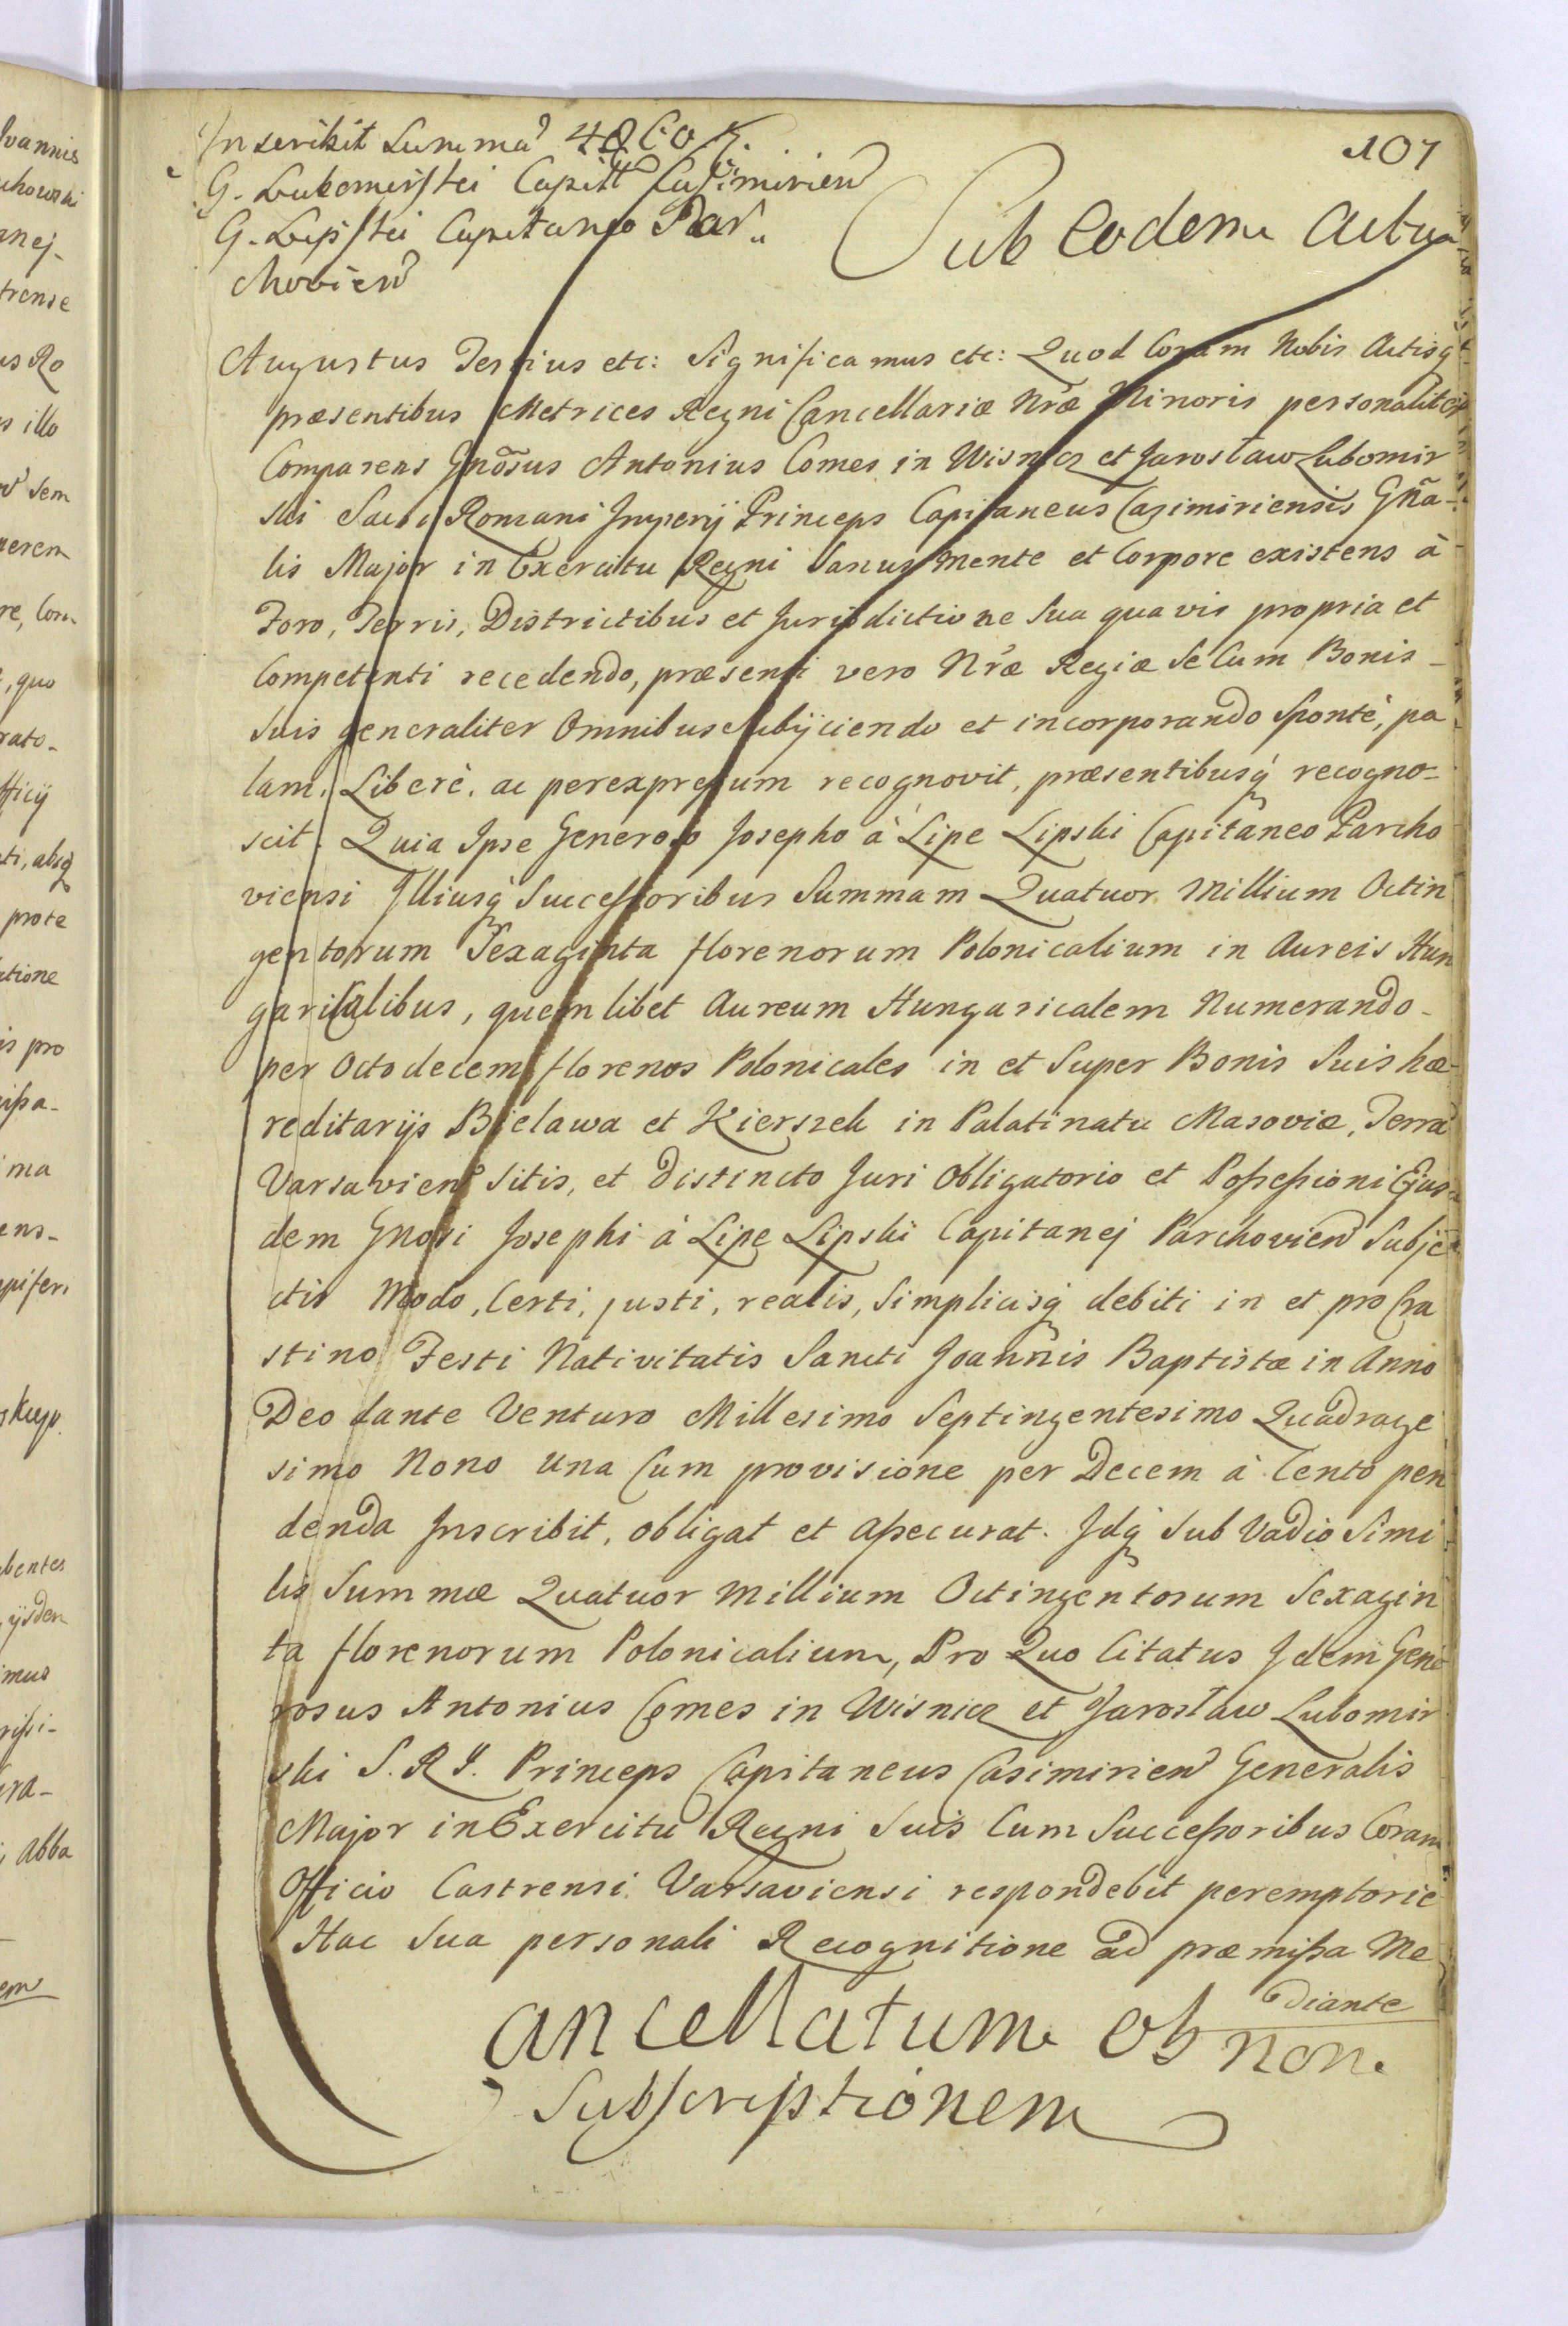 Inscribit Summã 4860 f.
G. Lubomirski Capitñ Casimirien
G. Lipski Capitaneo Par„
chovien
107
Sub eodem Actu
Augustus Tertius etc: Significamus etc: Quod Coram Nobis Actisq́
præsentibus Metrices Regni Cancellariæ Nr̃æ Minoris personaliter
Comparens Gnõsus Antonius Comes in Wisnicz et Jarosław Lubomir
ski Sacri Romani Imperij Princeps Capitaneus Casimiriensis Gña-
lis Major in Exercitu Regni Sanus Mente et Corpore existens à
Foro, Terris, Districtibus et Jurisdictione Sua quavis propria et
Competenti recedendo, præsenti vero Nr̃æ Regiæ Se Cum Bonis-
Suis generaliter Omnibus Subijciendo et incorporando Sponté, pa
lam, Liberè, ac perexpressum recognovit, præsentibusq́ recogno-
scit. Quia Ipse Generoso Josepho à Lipe Lipski Capitaneo Parcho
viensi Illiusq́ Successoribus Summam Quatuor Millium Octin
gentorum Sexaginta florenorum Polonicalium in Aureis Hun
garicalibus, quemlibet Aureum Hungaricalem Numerando-
per Octodecem florenos Polonicales in et Super Bonis Suis hæ-
reditarijs Bielawa et Kierszek in Palatinatu Masoviæ, Terra
Varsavien Sitis, et Distincto Juri Obligatorio et Possessioni Ejus
dem Gnosi Josephi à Lipe Lipski Capitanej Parchovien Subje
ctis Modo, Certi, justi, realis, Simplicisq́ debiti in et pro Cra
stino Festi Nativitatis Sancti Joannis Baptistæ in Anno
Deo dante Venturo Millesimo Septingentesimo Quadrage
simo Nono Una Cum provisione per Decem à Cento pen
denda Inscribit, obligat et assecurat. Idq́ Sub Vadio Simi
lis Summæ Quatuor Millium Octingentorum Sexagin
ta florenorum Polonicalium, Pro Quo Citatus Idem Gene
rosus Antonius Comes in Wisnicz et Jarosław Lubomir
ski S. R. I. Princeps Capitaneus Casimirien Generalis
Major in Exercitu Regni Suis Cum Successoribus Coram
Officio Castrensi Varsaviensi respondebit peremptorie
Hac Sua personali Recognitione ad præmissa Me
diante
Cancellatum ob non
Subscriptionem